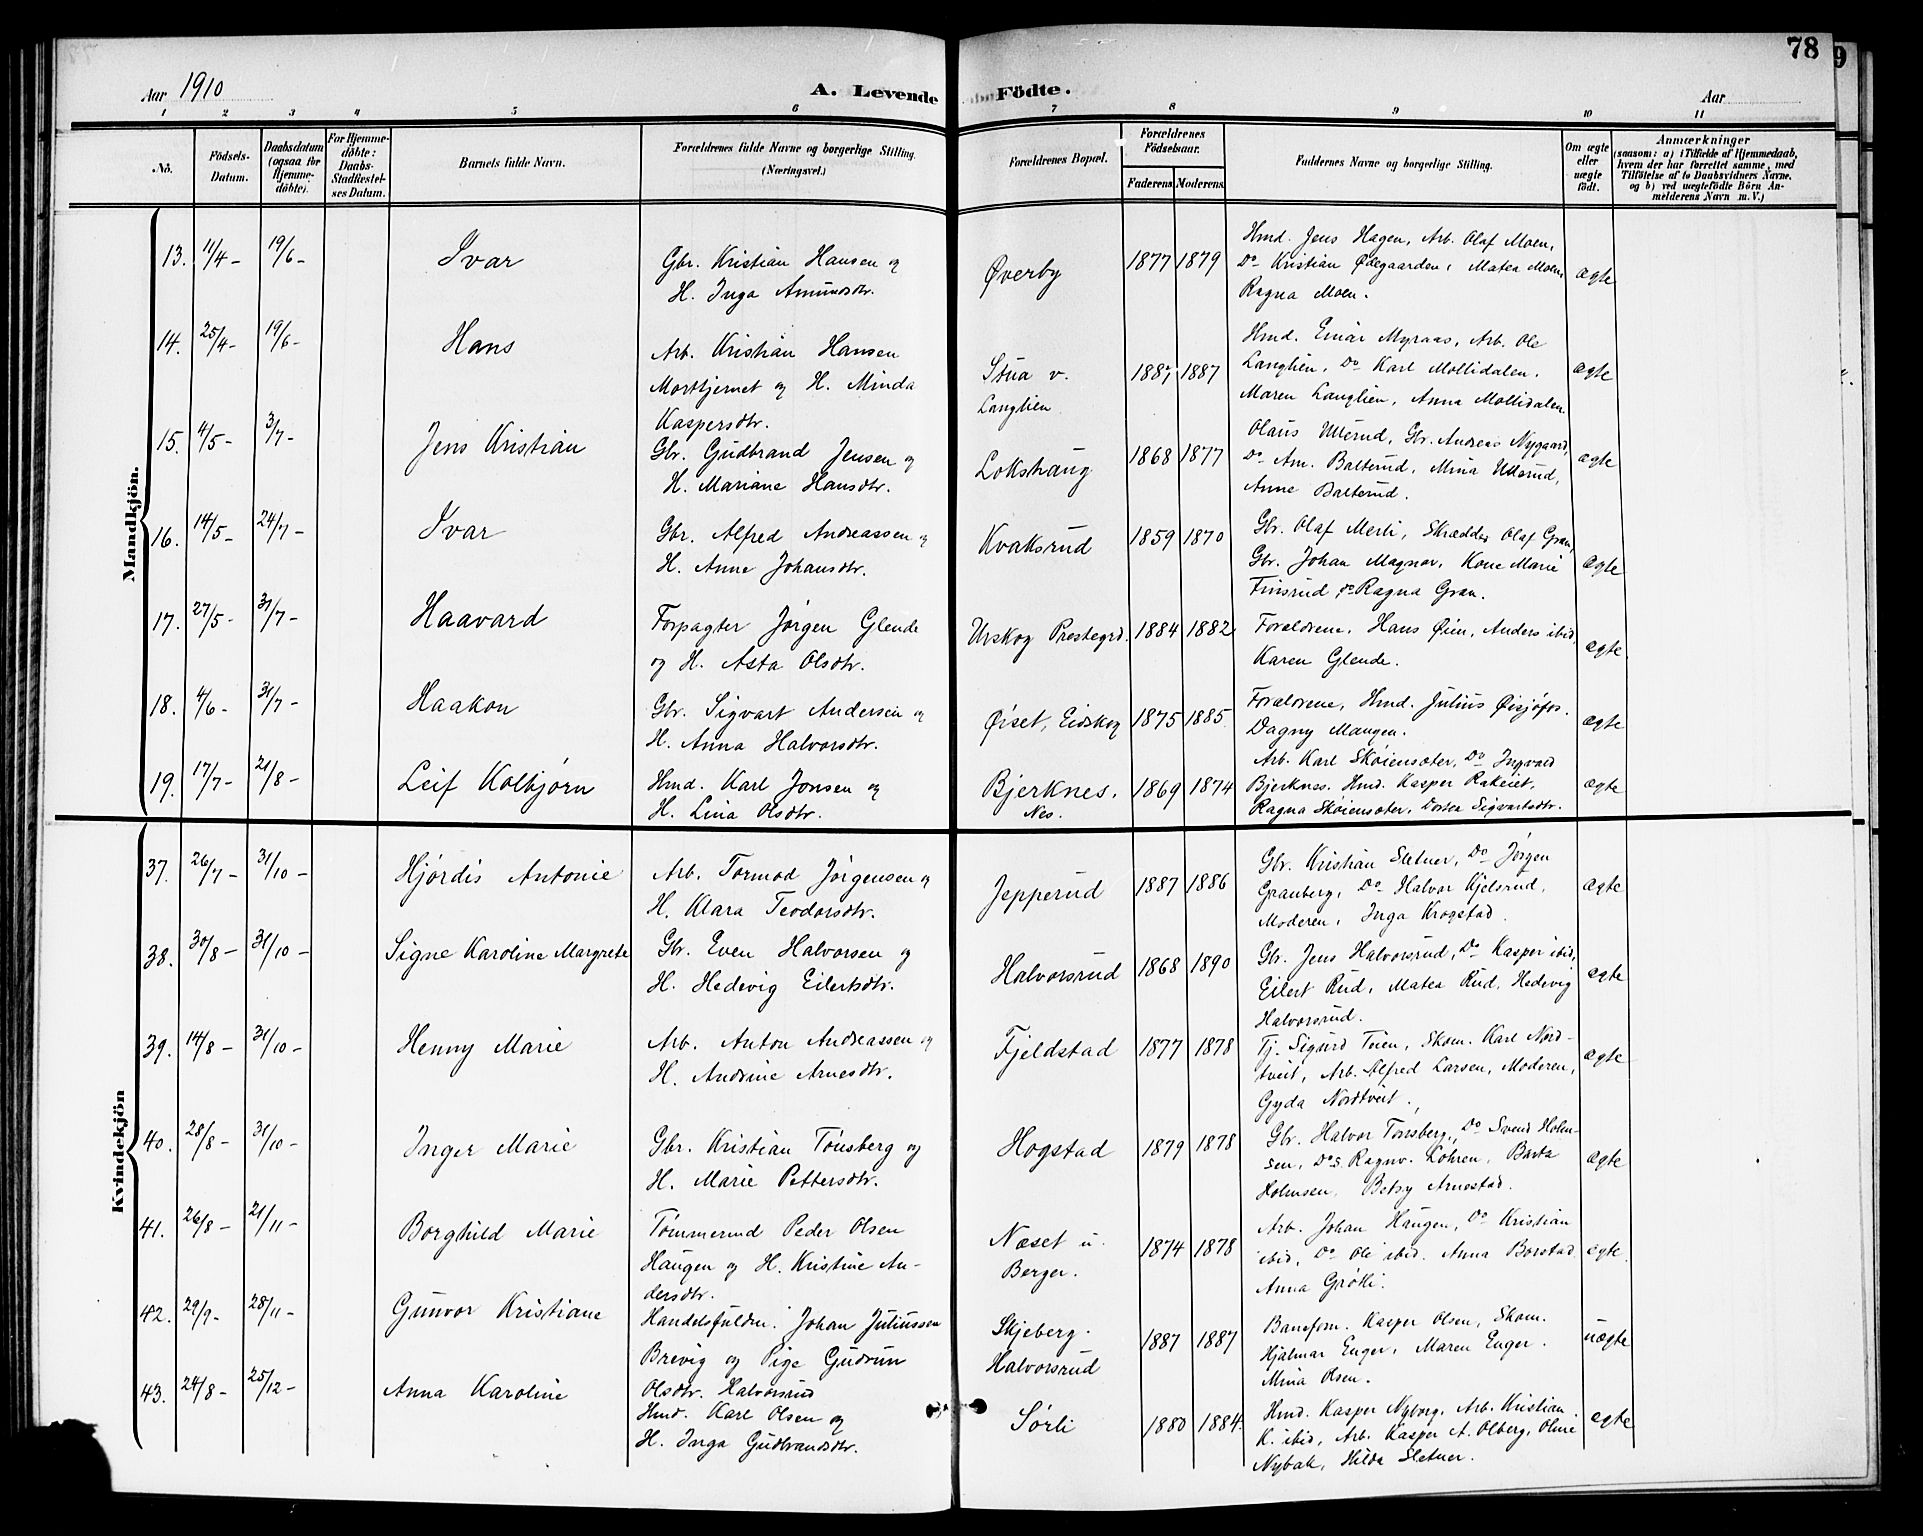 78
Aar 1910
A. Levende Födte.
Aar
1 2 3 4 5 6 7 8 9 10 11
No.
Födsels-Datum.
Daabsdatum (ogsaa for Hjemme-döbte).
For Hjemme-döbte: Daabs-Stadfæstel-ses Datum.
Barnets fulde Navn.
Forældrenes fulde Navne og borgerlige Stilling. (Næringsvei.)
Forældrenes Bopæl.
Forældrenes Födselsaar.
Faderens. Moderens.
Faddernes Navne og borgerlige Stilling.
Om ægte eller uægte födt.
Anmærkninger
(saasom: a) i Tilfælde af Hjemmedaab, hvem der har forrettet samme, med Tilföielse af to Daabsvidners Navne, og b) ved uægtefödte Börn An-melderens Navn m. V.)
Mandkjön.
13. 11/4 - 19/6 - Ivar
Gbr. Kristian Hansen og
H. Inga Amundsdtr.
Øverby 1877 1879
Hmd. Jens Hagen, Arb. Olaf Moen,
Do Kristian Ødegaarden, Matea Moen,
Ragna Moen.
ægte
14. 25/4 - 19/6 - Hans
Arb. Kristian Hansen
Morttjernet og H. Minda
Kaspersdtr.
Stua v.
Langlien
1887 1887
Hmd. Einar Myraas, Arb. Ole
Langlien, Do Karl Mollidalen,
Maren Langlien, Anna Mollidalen.
ægte
15. 4/5 - 3/7 - Jens Kristian
Gbr. Gudbrand Jensen og
H. Mariane Hansdtr.
Lokshaug 1868 1877
Olaus Ullerud, Gbr. Andreas Nygaard,
Do Am. Balterud, Mina Ullerud,
Anne Balterud.
ægte
16. 14/5 - 24/7 - Ivar
Gbr. Alfred Andreassen og
H. Anne Johansdtr.
Kvaksrud 1859 1870
Gbr. Olaf Merli, Skrædder Olaf Gran,
Gbr. Johan Magnor, Kone Marie
Finsrud, do Ragna Gran.
ægte
17. 27/5 - 31/7 - Haavard
Forpagter Jørgen Glende
og H. Asta Olsdtr.
Urskog Prestegrd. 1884 1882
Forældrene, Hans Øien, Anders ibid,
Karen Glende.
ægte.
18. 4/6 - 31/7 - Haakon
Gbr. Sigvart Andersen og
H. Anna Halvorsdtr.
Øiset, Eidskog 1875 1885
Forældrene, Hmd. Julius Øisjøfos.
Dagny Mangen.
ægte
19. 17/7 - 21/8 - Leif Kolbjørn
Hmd. Karl Jonsen og
H. Lina Olsdtr.
Bjerknes.
Nes.
1869 1874
Arb. Karl Skøiensæter, Do Ingvald
Bjerknes. Hmd. Kasper Rakeiet,
Ragna Skøiensæter, Dortea Sigvartsdtr.
ægte
Kvindekjön
37. 26/7 - 31/10 - Hjørdis Antonie
Arb. Tormod Jørgensen og
H. Klara Teodorsdtr.
Jepperud 1887 1886
Gbr. Kristian Sletner, Do Jørgen
Granberg, Do Halvor Kjelsrud,
Moderen, Inga Krogstad.
ægte
38. 30/8 - 31/10 - Signe Karoline Margrete
Gbr. Even Halvorsen og
H. Hedevig Eilertsdtr.
Halvorsrud 1868 1890
Gbr. Jens Halvorsrud, Do Kasper ibid,
Eilert Rud, Matea Rud, Hedevig
Halvorsrud.
ægte
39. 14/8 - 31/10 - Henny Marie
Arb. Anton Andreassen og
H. Andrine Arnesdtr.
Fjeldstad 1877 1878
Tj. Sigurd Teien, Skom. Karl Nord-
tveit, Arb. Alfred Larsen, Moderen,
Gyda Nordtveit.
ægte
40. 28/8 - 31/10 - Inger Marie
Gbr. Kristian Tønsberg og
H. Marie Pettersdtr.
Hogstad 1879 1878
Gbr. Halvor Tønsberg, Do Svend Holm-
sen, Dos. Ragnv. Lohren, Barta
Holmsen, Betsy Arnestad.
ægte
41. 26/8 - 21/11 - Borghild Marie
Tømmermd Peder Olsen
Haugen og H. Kristine An-
dersdtr.
Næset u.
Berger.
1874 1878
Arb. Johan Haugen, Do Kristian
ibid, Do Ole ibid. Anna Borstad
Anna Grøtli.
ægte.
42. 29/9 - 28/11 - Gunvor Kristiane
Handelsfuldm. Johan Juliussen
Brevig og Pige Gudrun
Olsdtr. Halvorsrud
Skjeberg.
Halvorsrud
1887 1887
Banefom. Kasper Olsen, Skom.
Hjalmar Enger, Maren Enger.
Mina Olsen.
uægte
43. 24/8 - 25/12 - Anna Karoline
Hmd. Karl Olsen og
H. Inga Gudbrandsdtr.
Sørli 1880 1884.
Hmd. Kasper Nyborg, Arb. Kristian
K. ibid, Arb. Kasper A. Olberg, Oline
Nybak, Hilda Sletner.
ægte